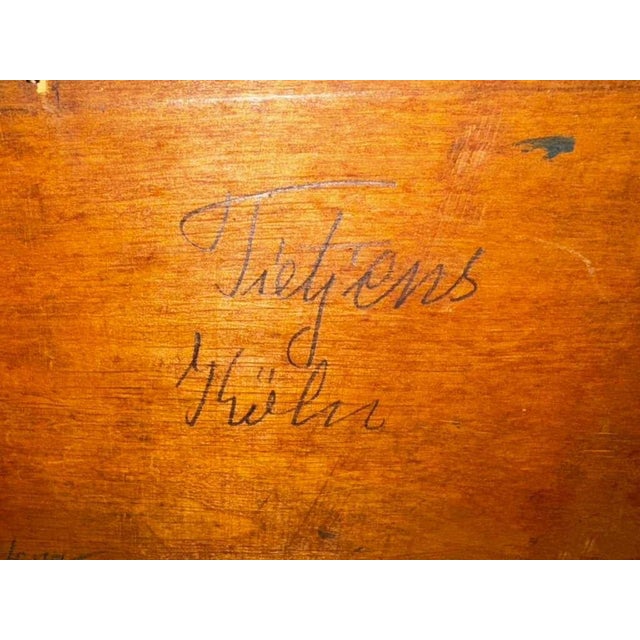 Tietjens
Köln